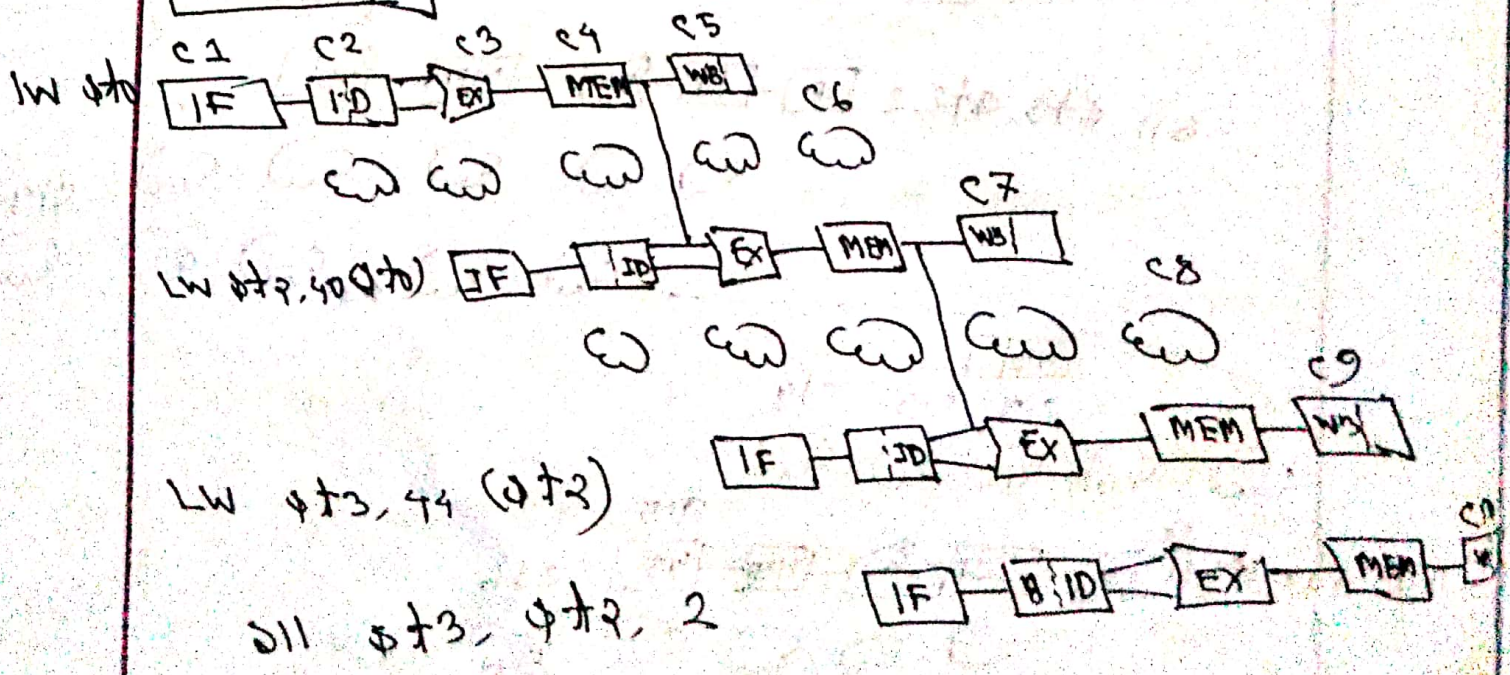 C1 C2 C3 C4 C5
lw $t0 IF ID EX MEM WB
C6
C7
LW $t2, 40($t0) IF ID EX MEM WB
C8
C9
LW $t3, 44 ($t2) IF ID EX MEM WB
sll $t3, $t2, 2 IF B ID EX MEM